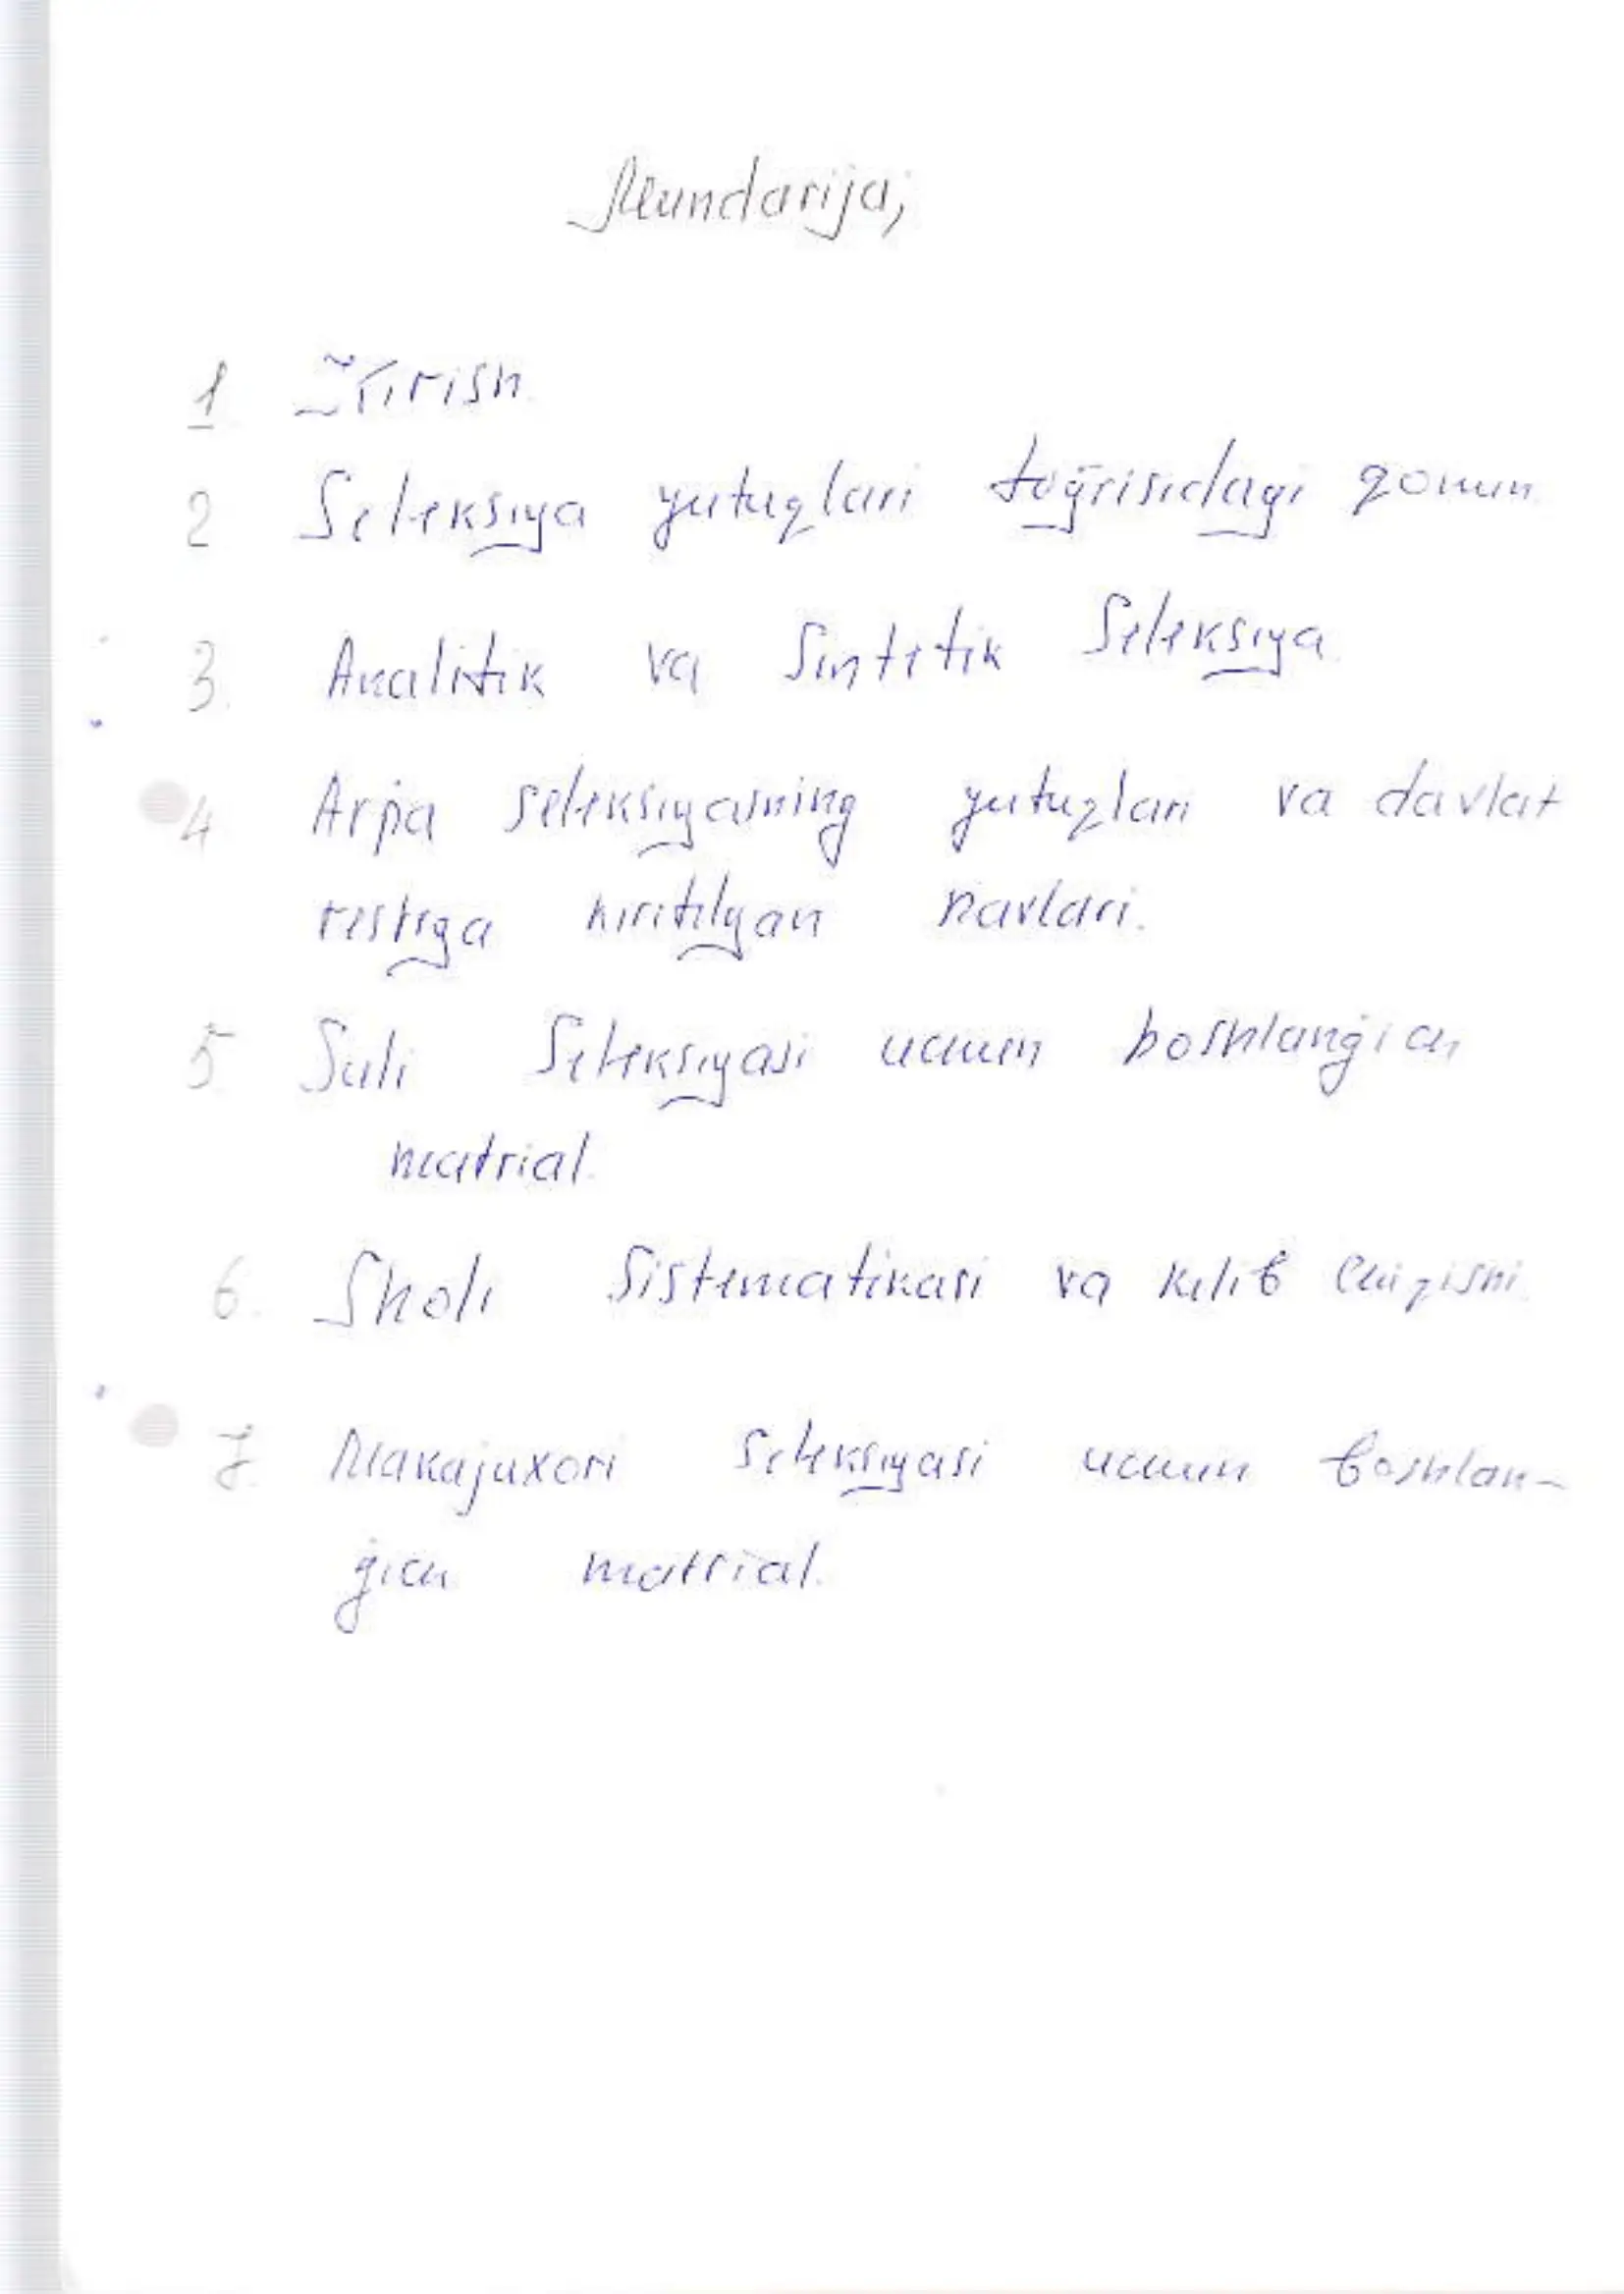 Mundarija;
1 Kirish.
2 Seleksiya yutuqlari toğrisidagi qonun.
3. Analitik va Sintetik Seleksiya.
4 Arpa seleksiyasining yutuqlari va davlat
restiga kiritilgan navlari.
5. Suli Seleksiyasi uchun boshlanġich
matrial.
6. Sholi Sistematikasi va kelib chiqishi.
7. Makajuxori Seleksiyasi uchun boshlan-
ġich matrial.